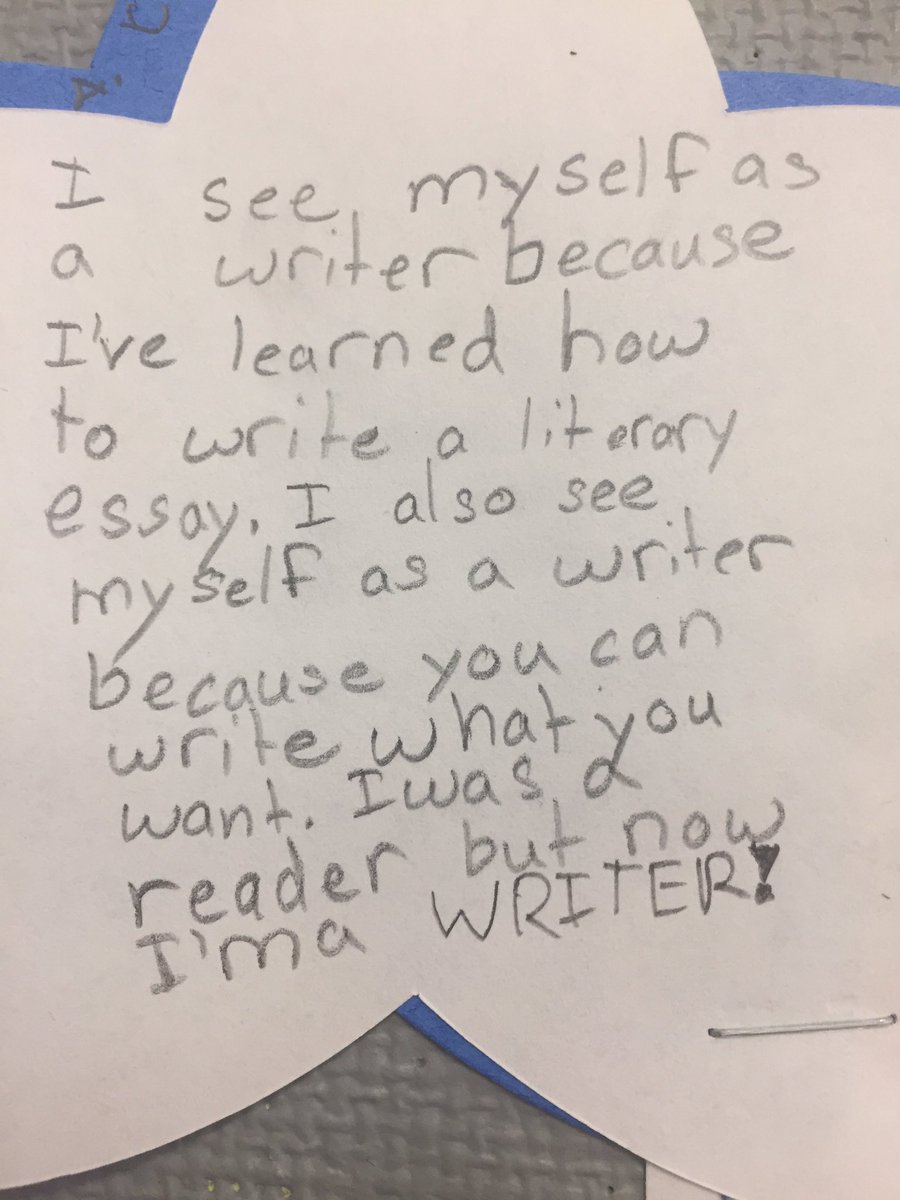 I see myself as
a writer because
I've learned how
to write a literary
essay. I also see
myself as a writer
because you can
write what you
want. I was a
reader but now
I'm a WRITER!